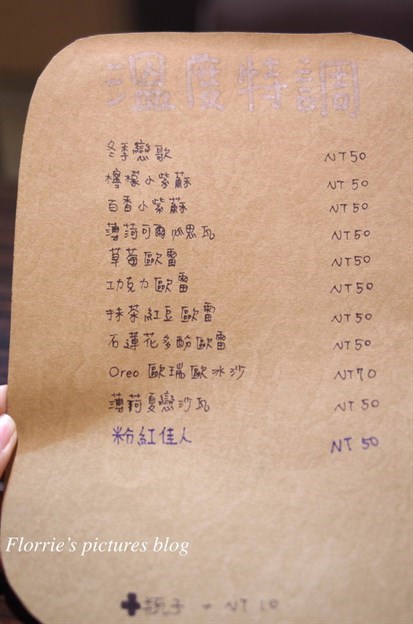 溫度特調
冬季戀歌 NT50
檸檬小紫蘇 NT50
百香小紫蘇 NT50
薄荷可爾必思瓦 NT50
草莓歐蕾 NT50
巧克力歐蕾 NT50
抹茶紅豆歐蕾 NT50
石蓮花多酚歐蕾 NT50
Oreo 歐瑞歐冰沙 NT70
薄荷夏戀沙瓦 NT 50
粉紅佳人 NT 50
Florrie's pictures blog
NT 10